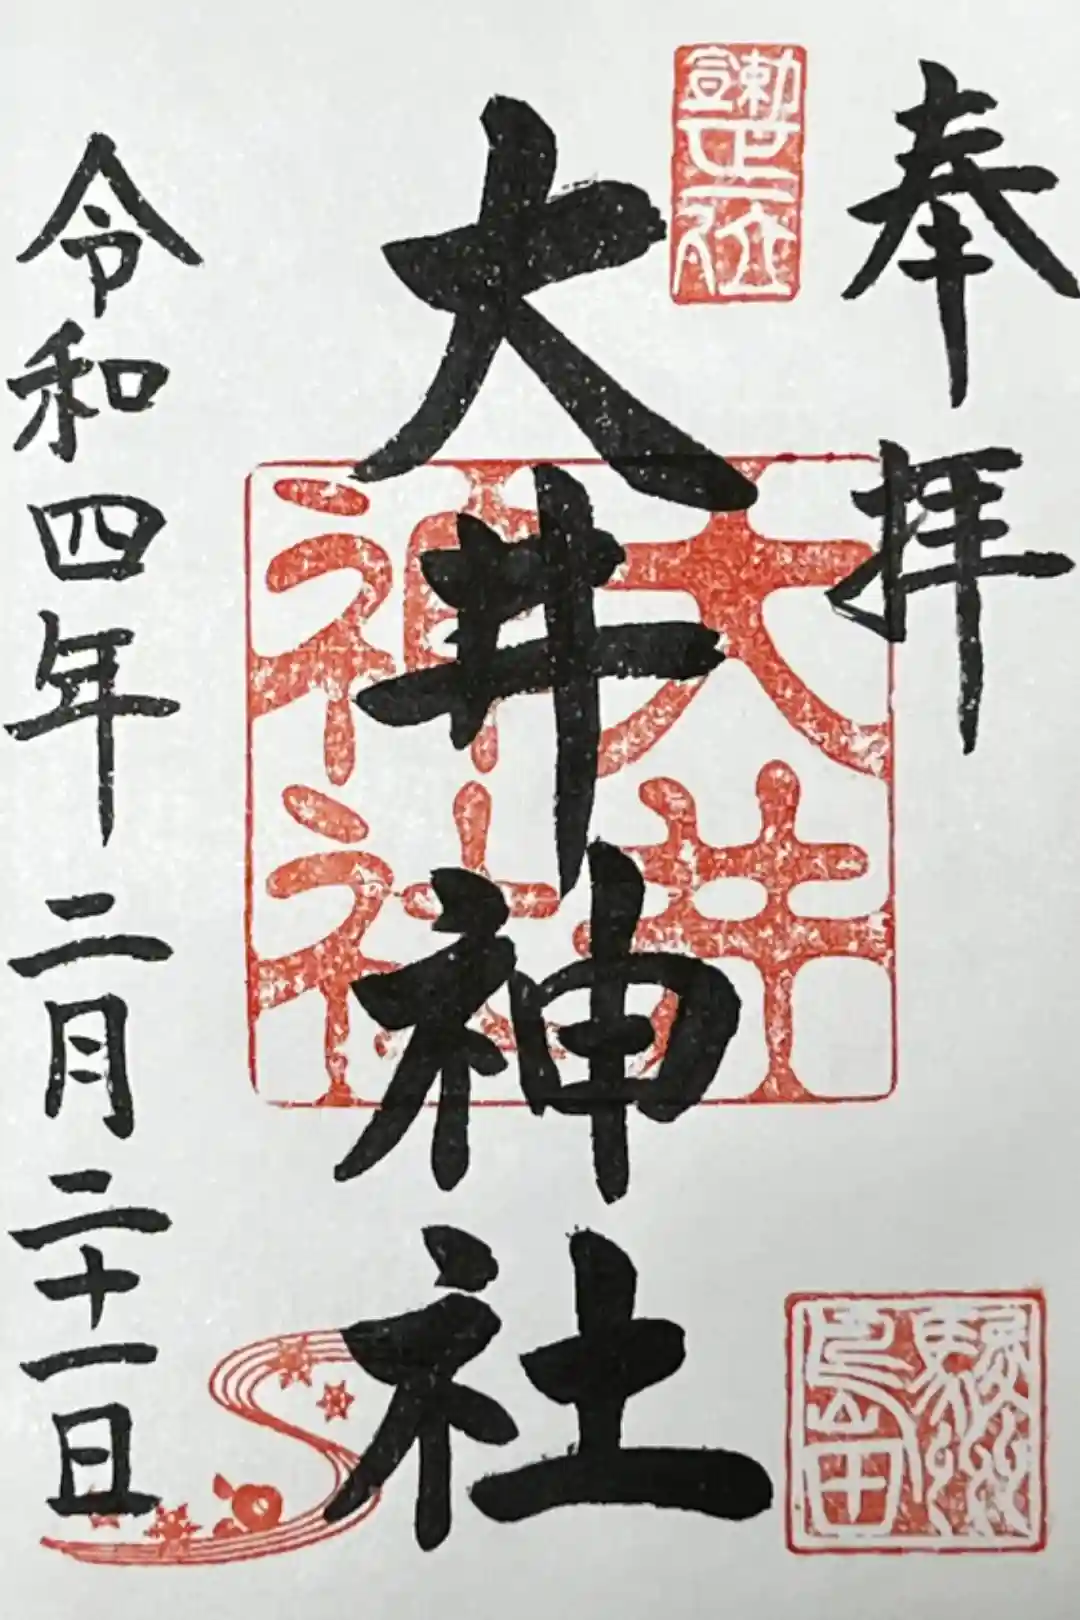 奉拝
勅宣正一位
大井神社
大井神社
駿州島田
令和四年二月二十一日